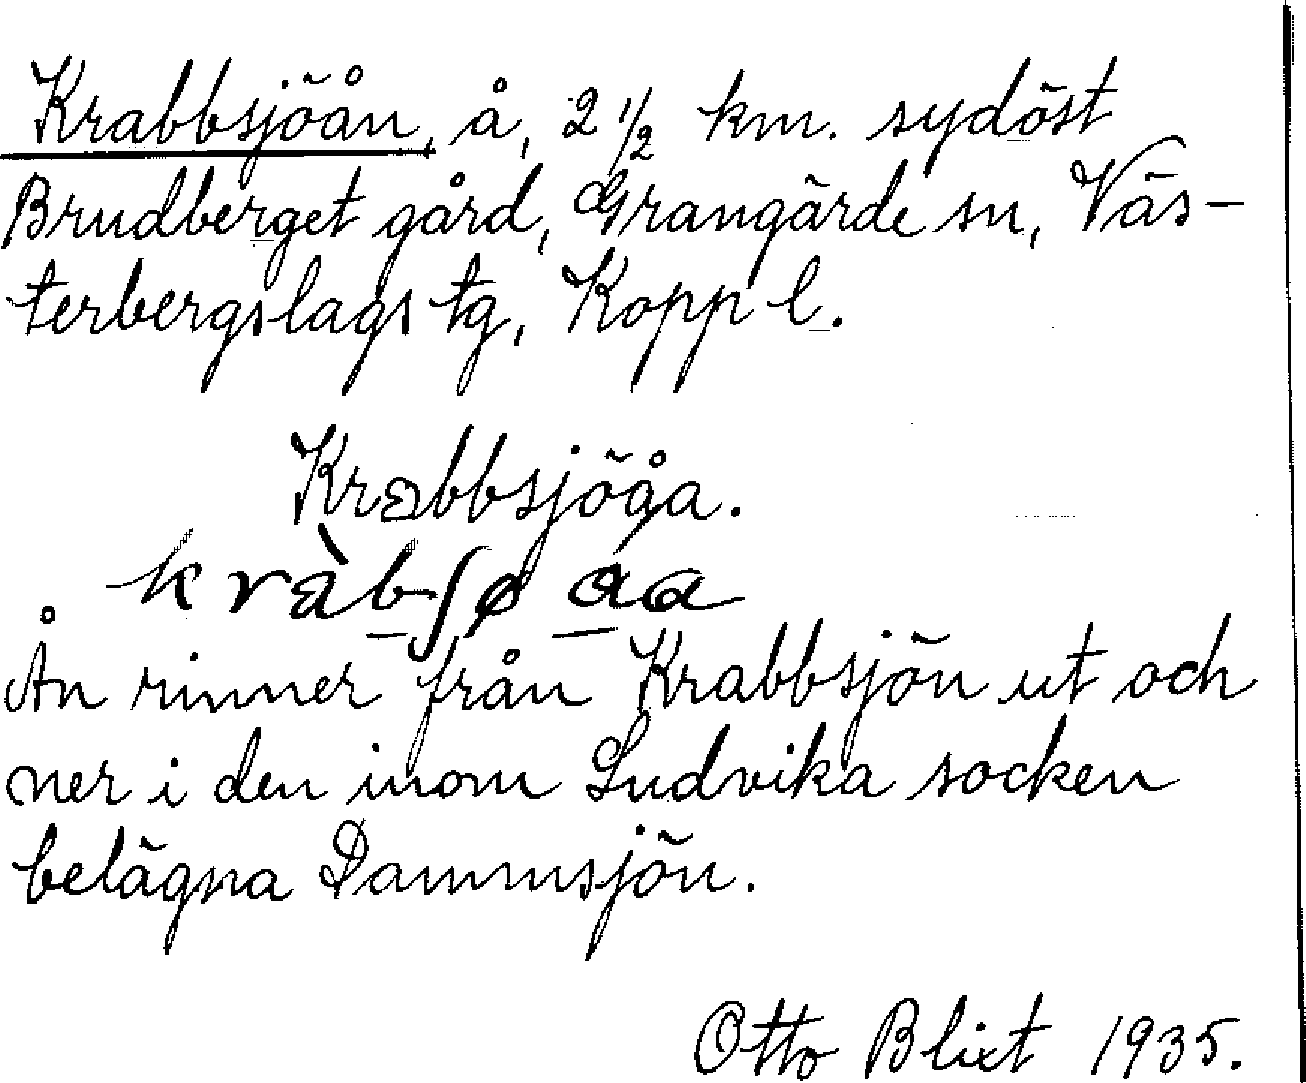 Krabbsjöån, å, 2 1/2 km. sydöst
Brudberget gård, Grangärde sn, Väs-
terbergslags tg, Kopp l.
Krabbsjöåa.
kràbʃø åa
Ån rinner från Krabbsjön ut och
ner i den inom Ludvika socken
belägna Dammsjön.
Otto Blixt 1935.